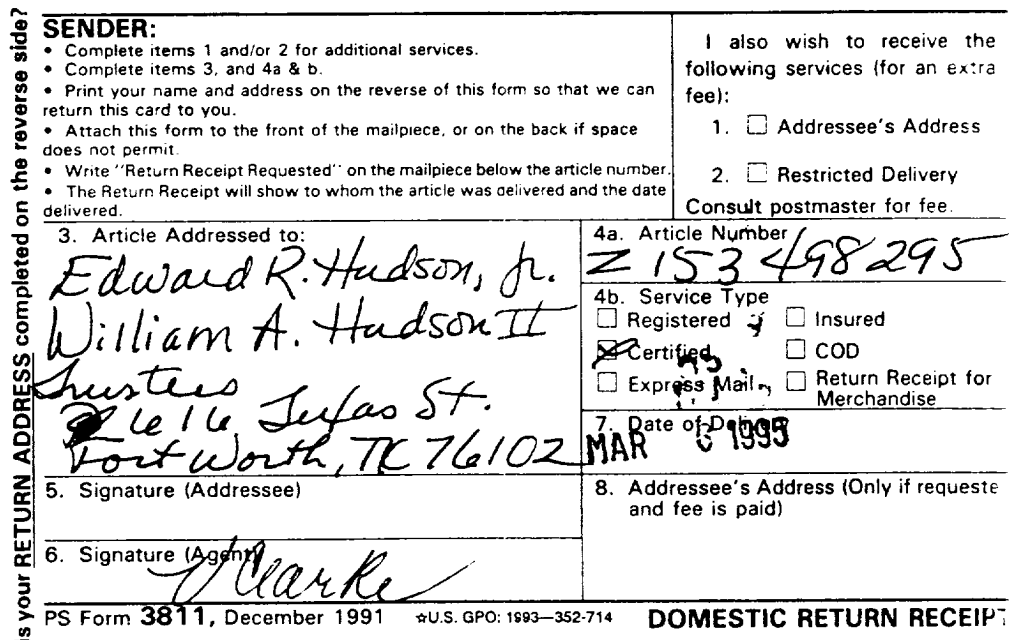 SENDER:
• Complete items 1 and/or 2 for additional services.
• Complete items 3, and 4a & b.
• Print your name and address on the reverse of this form so that we can
return this card to you.
• Attach this form to the front of the mailpiece, or on the back if space
does not permit.
• Write "Return Receipt Requested" on the mailpiece below the article number.
• The Return Receipt will show to whom the article was delivered and the date
delivered.
I also wish to receive the
following services (for an extra
fee):
1. ☐ Addressee's Address
2. ☐ Restricted Delivery
Consult postmaster for fee.
3. Article Addressed to:
Edward R. Hudson, Jr.
William A. Hudson II
Trustees
616 Texas St.
Fort Worth, TX 76102
4a. Article Number
Z 153 498 295
4b. Service Type
☐ Registered ☐ Insured
☒ Certified ☐ COD
☐ Express Mail ☐ Return Receipt for
Merchandise
7. Date of Delivery
MAR 6 1995
5. Signature (Addressee)
8. Addressee's Address (Only if requeste
and fee is paid)
6. Signature (Agent)
V Clarke
PS Form 3811, December 1991 ☆U.S. GPO: 1993—352-714 DOMESTIC RETURN RECEIPT
s your RETURN ADDRESS completed on the reverse side?